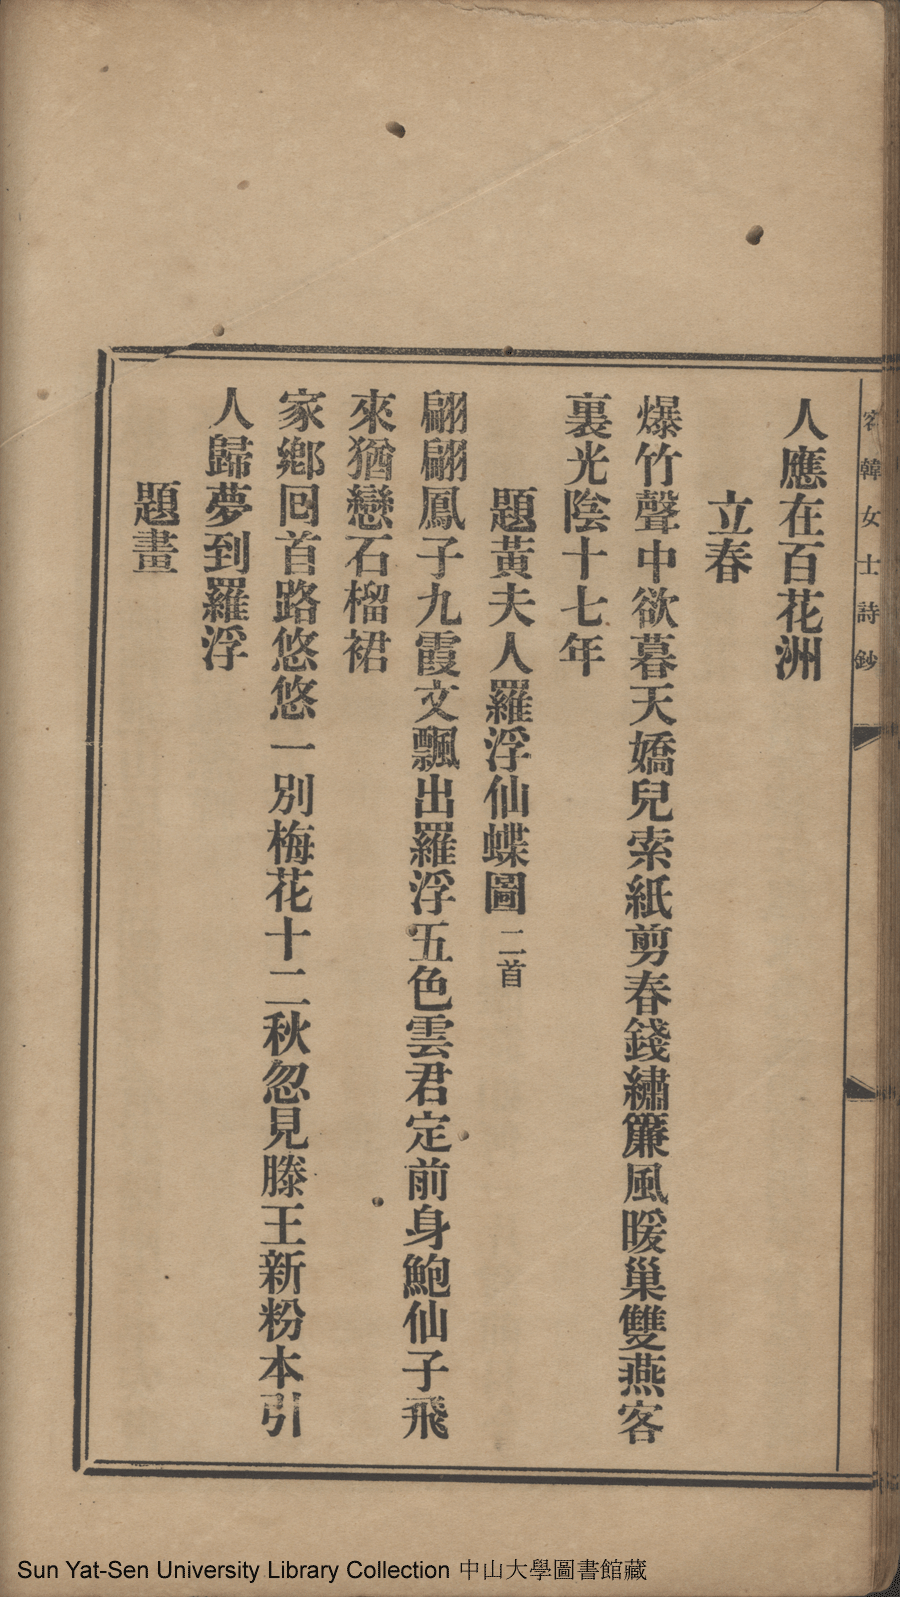 容韓女士詩鈔
人應在百花洲
立春
爆竹聲中欲暮天嬌兒索紙剪春錢繡簾風暖巢雙燕客
裏光陰十七年
題黃夫人羅浮仙蝶圖二首
翩翩鳳子九霞文飄出羅浮五色雲君定前身鮑仙子飛
來猶戀石榴裙
家鄉回首路悠悠一別梅花十二秋忽見滕王新粉本引
人歸夢到羅浮
題畫
Sun Yat-Sen University Library Collection 中山大學圖書館藏